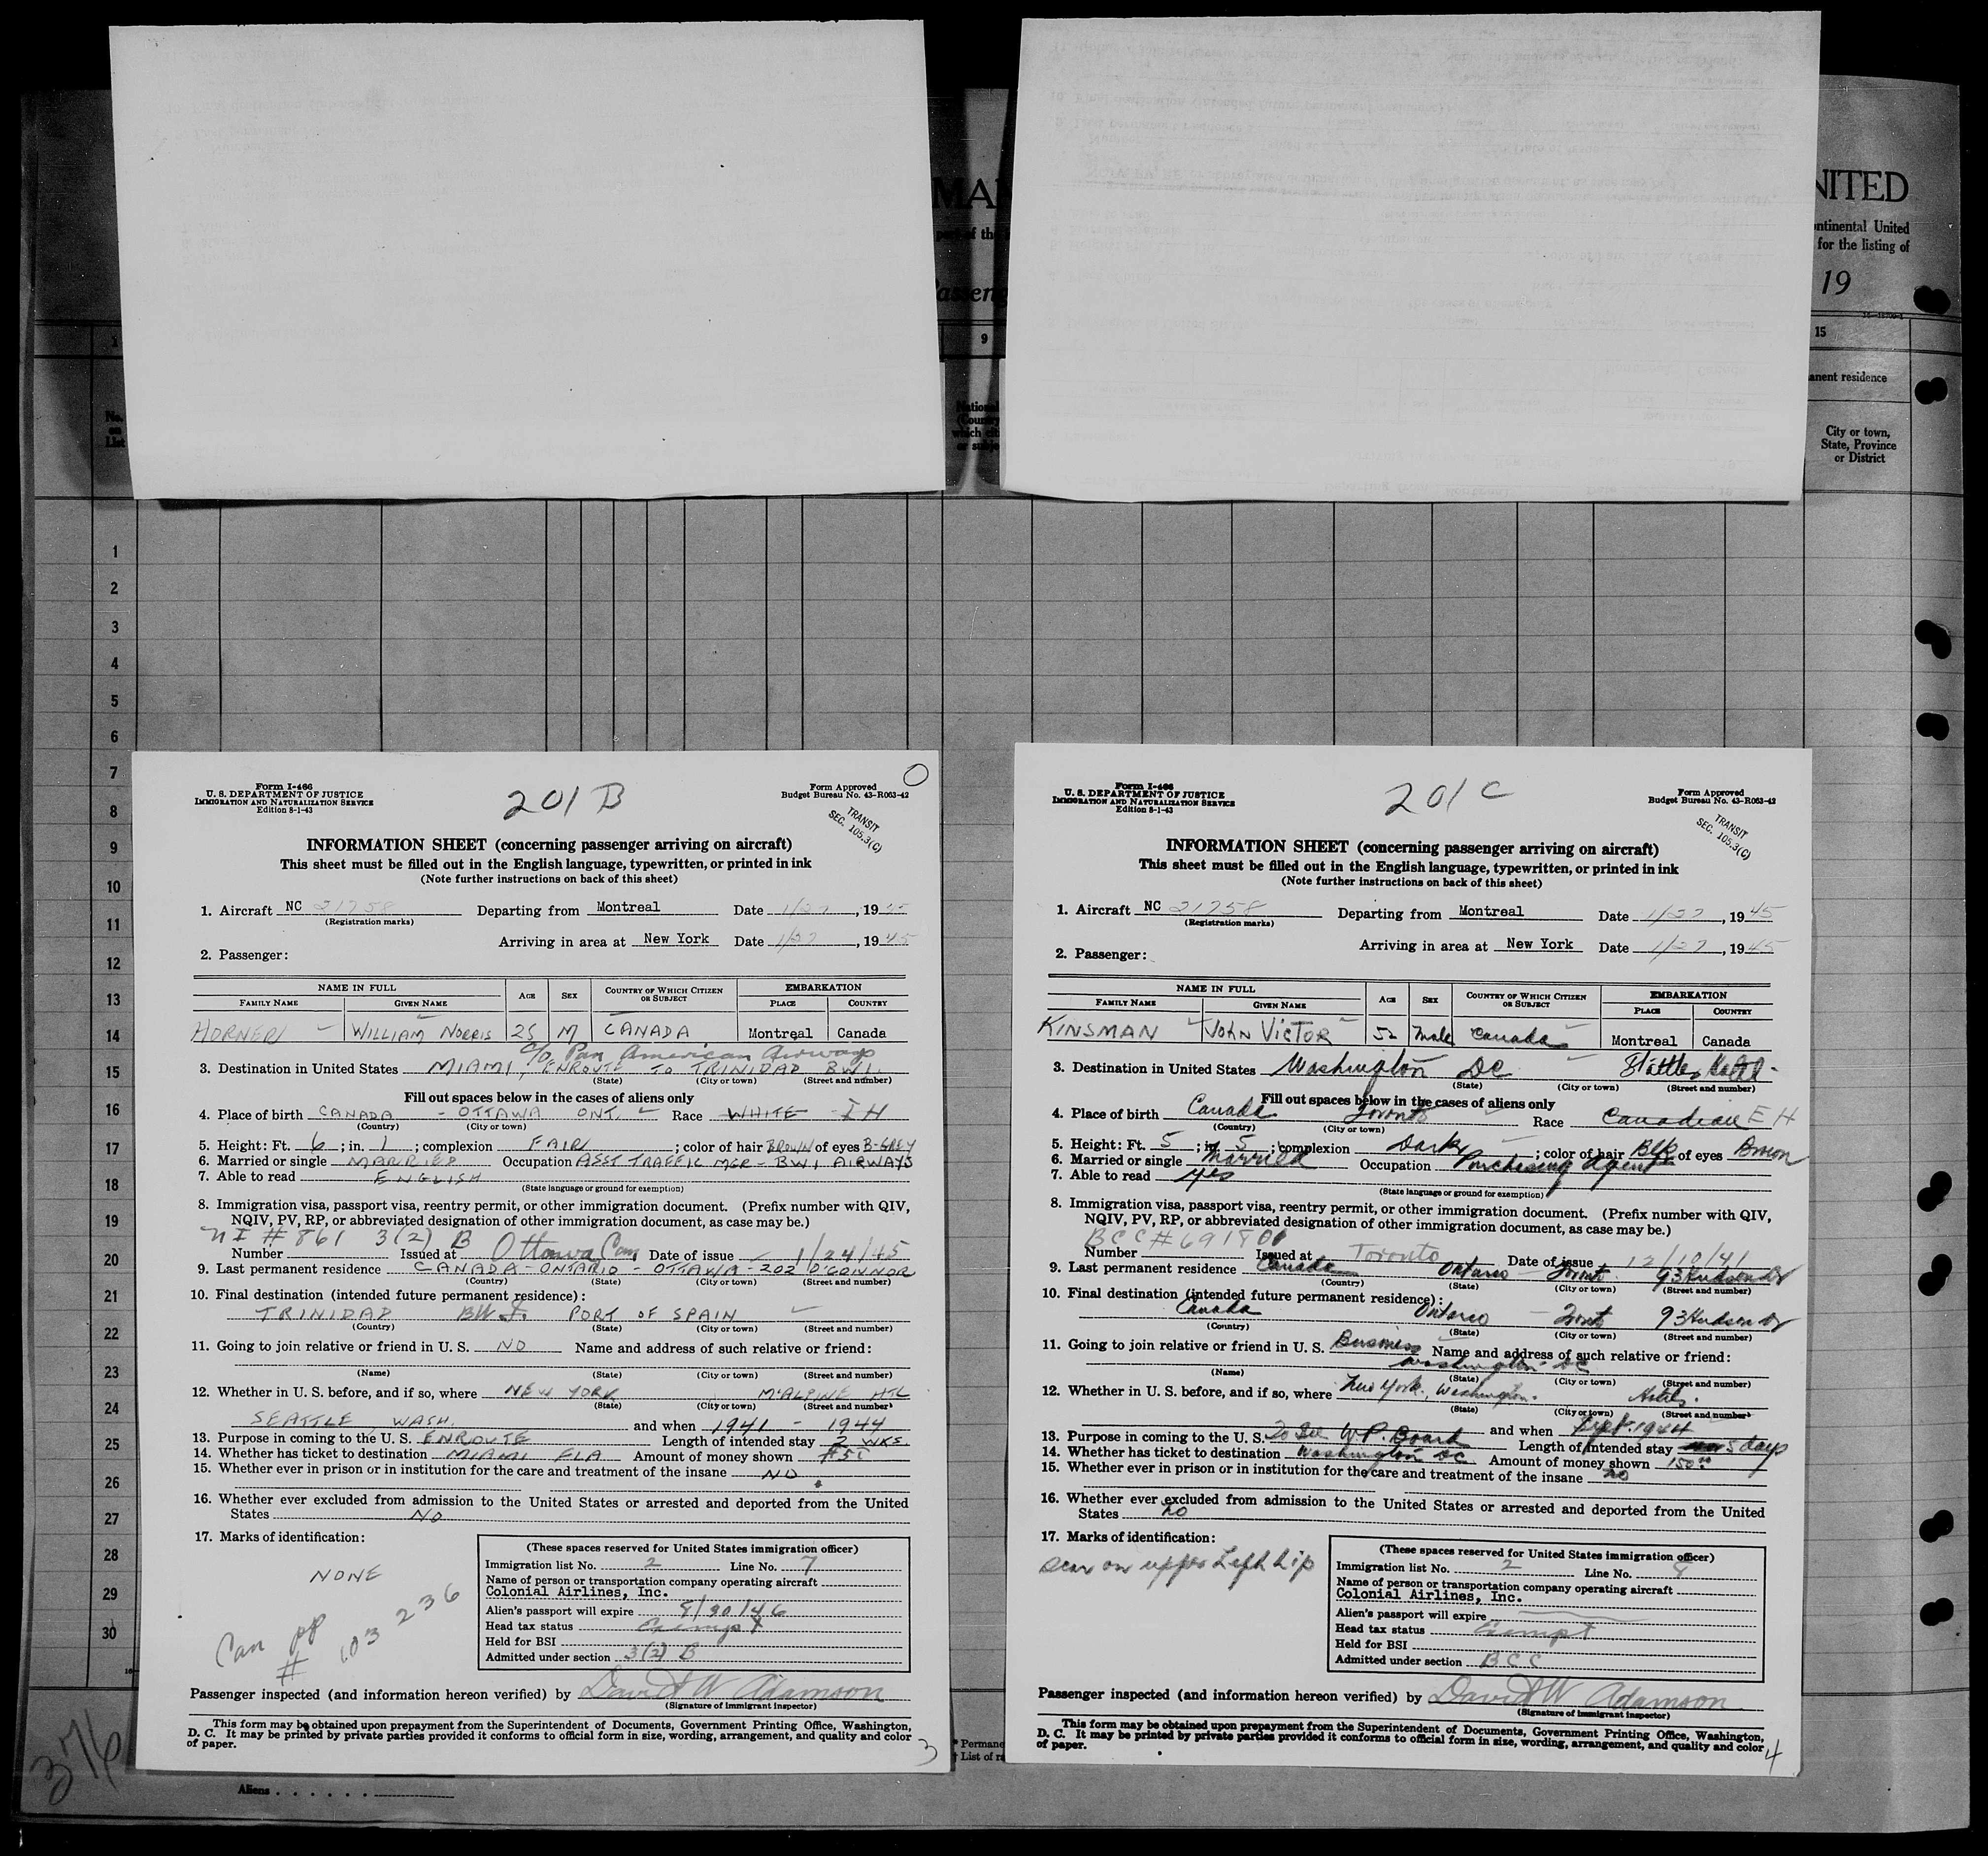 MAN
NITED
part of the
ntinental United
for the listing of
Passeng
19
1
9
15
anent residence
No.
on
List
National
(Country
which citi
or subje
City or town,
State, Province
or District
1
2
3
4
5
6
7
8
9
10
11
12
13
14
15
16
17
18
19
20
21
22
23
24
25
26
27
28
29
30
376
Aliens . . . . . .
* Permane
† List of ra
Form I-466
U. S. DEPARTMENT OF JUSTICE
IMMIGRATION AND NATURALIZATION SERVICE
Edition 8-1-43
201 B
Form Approved
Budget Bureau No. 43-R063-42
TRANSIT
SEC. 105.3(C)
INFORMATION SHEET (concerning passenger arriving on aircraft)
This sheet must be filled out in the English language, typewritten, or printed in ink
(Note further instructions on back of this sheet)
1. Aircraft NC 21758 Departing from Montreal Date 1/27, 1945
(Registration marks)
Arriving in area at New York Date 1/27, 1945
2. Passenger:
NAME IN FULL AGE SEX COUNTRY OF WHICH CITIZEN OR SUBJECT EMBARKATION
FAMILY NAME GIVEN NAME PLACE COUNTRY
HORNER WILLIAM NORRIS 25 M CANADA Montreal Canada
c/o Pan American Airways
3. Destination in United States MIAMI, ENROUTE TO TRINIDAD BWI.
(State) (City or town) (Street and number)
Fill out spaces below in the cases of aliens only
4. Place of birth CANADA - OTTAWA ONT. Race WHITE IH
(Country) (City or town)
5. Height: Ft. 6; in. 1; complexion FAIR; color of hair BROWN of eyes B-GREY
6. Married or single MARRIED Occupation ASST TRAFFIC MGR - BWI AIRWAYS
7. Able to read ENGLISH
(State language or ground for exemption)
8. Immigration visa, passport visa, reentry permit, or other immigration document. (Prefix number with QIV,
NQIV, PV, RP, or abbreviated designation of other immigration document, as case may be.)
NI # 861 3(2) B
Number Issued at Ottawa Can Date of issue 1/24/45
9. Last permanent residence CANADA - ONTARIO - OTTAWA - 202 O'CONNOR
(Country) (State) (City or town) (Street and number)
10. Final destination (intended future permanent residence):
TRINIDAD BWI. PORT OF SPAIN
(Country) (State) (City or town) (Street and number)
11. Going to join relative or friend in U. S. NO Name and address of such relative or friend:
(Name) (State) (City or town) (Street and number)
12. Whether in U. S. before, and if so, where NEW YORK McALPINE HTL
(State) (City or town) (Street and number)
SEATTLE WASH. and when 1941 - 1944
13. Purpose in coming to the U. S. ENROUTE Length of intended stay 2 WKS.
14. Whether has ticket to destination MIAMI FLA Amount of money shown
15. Whether ever in prison or in institution for the care and treatment of the insane NO
16. Whether ever excluded from admission to the United States or arrested and deported from the United
States NO
17. Marks of identification:
NONE
Can pp
# 103236
(These spaces reserved for United States immigration officer)
Immigration list No. 2 Line No. 7
Name of person or transportation company operating aircraft
Colonial Airlines, Inc.
Alien's passport will expire 9/30/46
Head tax status Exempt
Held for BSI
Admitted under section 3(2) B
Passenger inspected (and information hereon verified) by David W Adamson
(Signature of immigrant inspector)
This form may be obtained upon prepayment from the Superintendent of Documents, Government Printing Office, Washington,
D. C. It may be printed by private parties provided it conforms to official form in size, wording, arrangement, and quality and color
of paper.
3
Form I-466
U. S. DEPARTMENT OF JUSTICE
IMMIGRATION AND NATURALIZATION SERVICE
Edition 8-1-43
201 C
Form Approved
Budget Bureau No. 43-R063-42
TRANSIT
SEC. 105.3(C)
INFORMATION SHEET (concerning passenger arriving on aircraft)
This sheet must be filled out in the English language, typewritten, or printed in ink
(Note further instructions on back of this sheet)
1. Aircraft NC 21758 Departing from Montreal Date 1/27, 1945
(Registration marks)
Arriving in area at New York Date 1/27, 1945
2. Passenger:
NAME IN FULL AGE SEX COUNTRY OF WHICH CITIZEN OR SUBJECT EMBARKATION
FAMILY NAME GIVEN NAME PLACE COUNTRY
KINSMAN JOHN VICTOR 52 Male Canada Montreal Canada
3. Destination in United States Washington DC Statler Hotel
(State) (City or town) (Street and number)
Fill out spaces below in the cases of aliens only
4. Place of birth Canada Toronto Race Canadian EH
(Country) (City or town)
5. Height: Ft. 5; in. 5; complexion Dark; color of hair Blk of eyes Brown
6. Married or single Married Occupation Purchasing Agent
7. Able to read yes
(State language or ground for exemption)
8. Immigration visa, passport visa, reentry permit, or other immigration document. (Prefix number with QIV,
NQIV, PV, RP, or abbreviated designation of other immigration document, as case may be.)
BCC # 691801
Number Issued at Toronto Date of issue 12/10/41
9. Last permanent residence Canada Ontario Toronto 93 Hudson Dr
(Country) (State) (City or town) (Street and number)
10. Final destination (intended future permanent residence):
Canada Ontario Toronto 93 Hudson Dr
(Country) (State) (City or town) (Street and number)
11. Going to join relative or friend in U. S. Business Name and address of such relative or friend:
Washington DC
(Name) (State) (City or town) (Street and number)
12. Whether in U. S. before, and if so, where New York, Washington. Hotels.
(State) (City or town) (Street and number)
and when Sept. 1944
13. Purpose in coming to the U. S. To See W.P. Board Length of intended stay 5 days
14. Whether has ticket to destination Washington DC Amount of money shown 150.00
15. Whether ever in prison or in institution for the care and treatment of the insane no
16. Whether ever excluded from admission to the United States or arrested and deported from the United
States no
17. Marks of identification:
scar on upper Left Lip
(These spaces reserved for United States immigration officer)
Immigration list No. 2 Line No.
Name of person or transportation company operating aircraft
Colonial Airlines, Inc.
Alien's passport will expire
Head tax status Exempt
Held for BSI
Admitted under section BCC
Passenger inspected (and information hereon verified) by David W Adamson
(Signature of immigrant inspector)
This form may be obtained upon prepayment from the Superintendent of Documents, Government Printing Office, Washington,
D. C. It may be printed by private parties provided it conforms to official form in size, wording, arrangement, and quality and color
of paper.
4